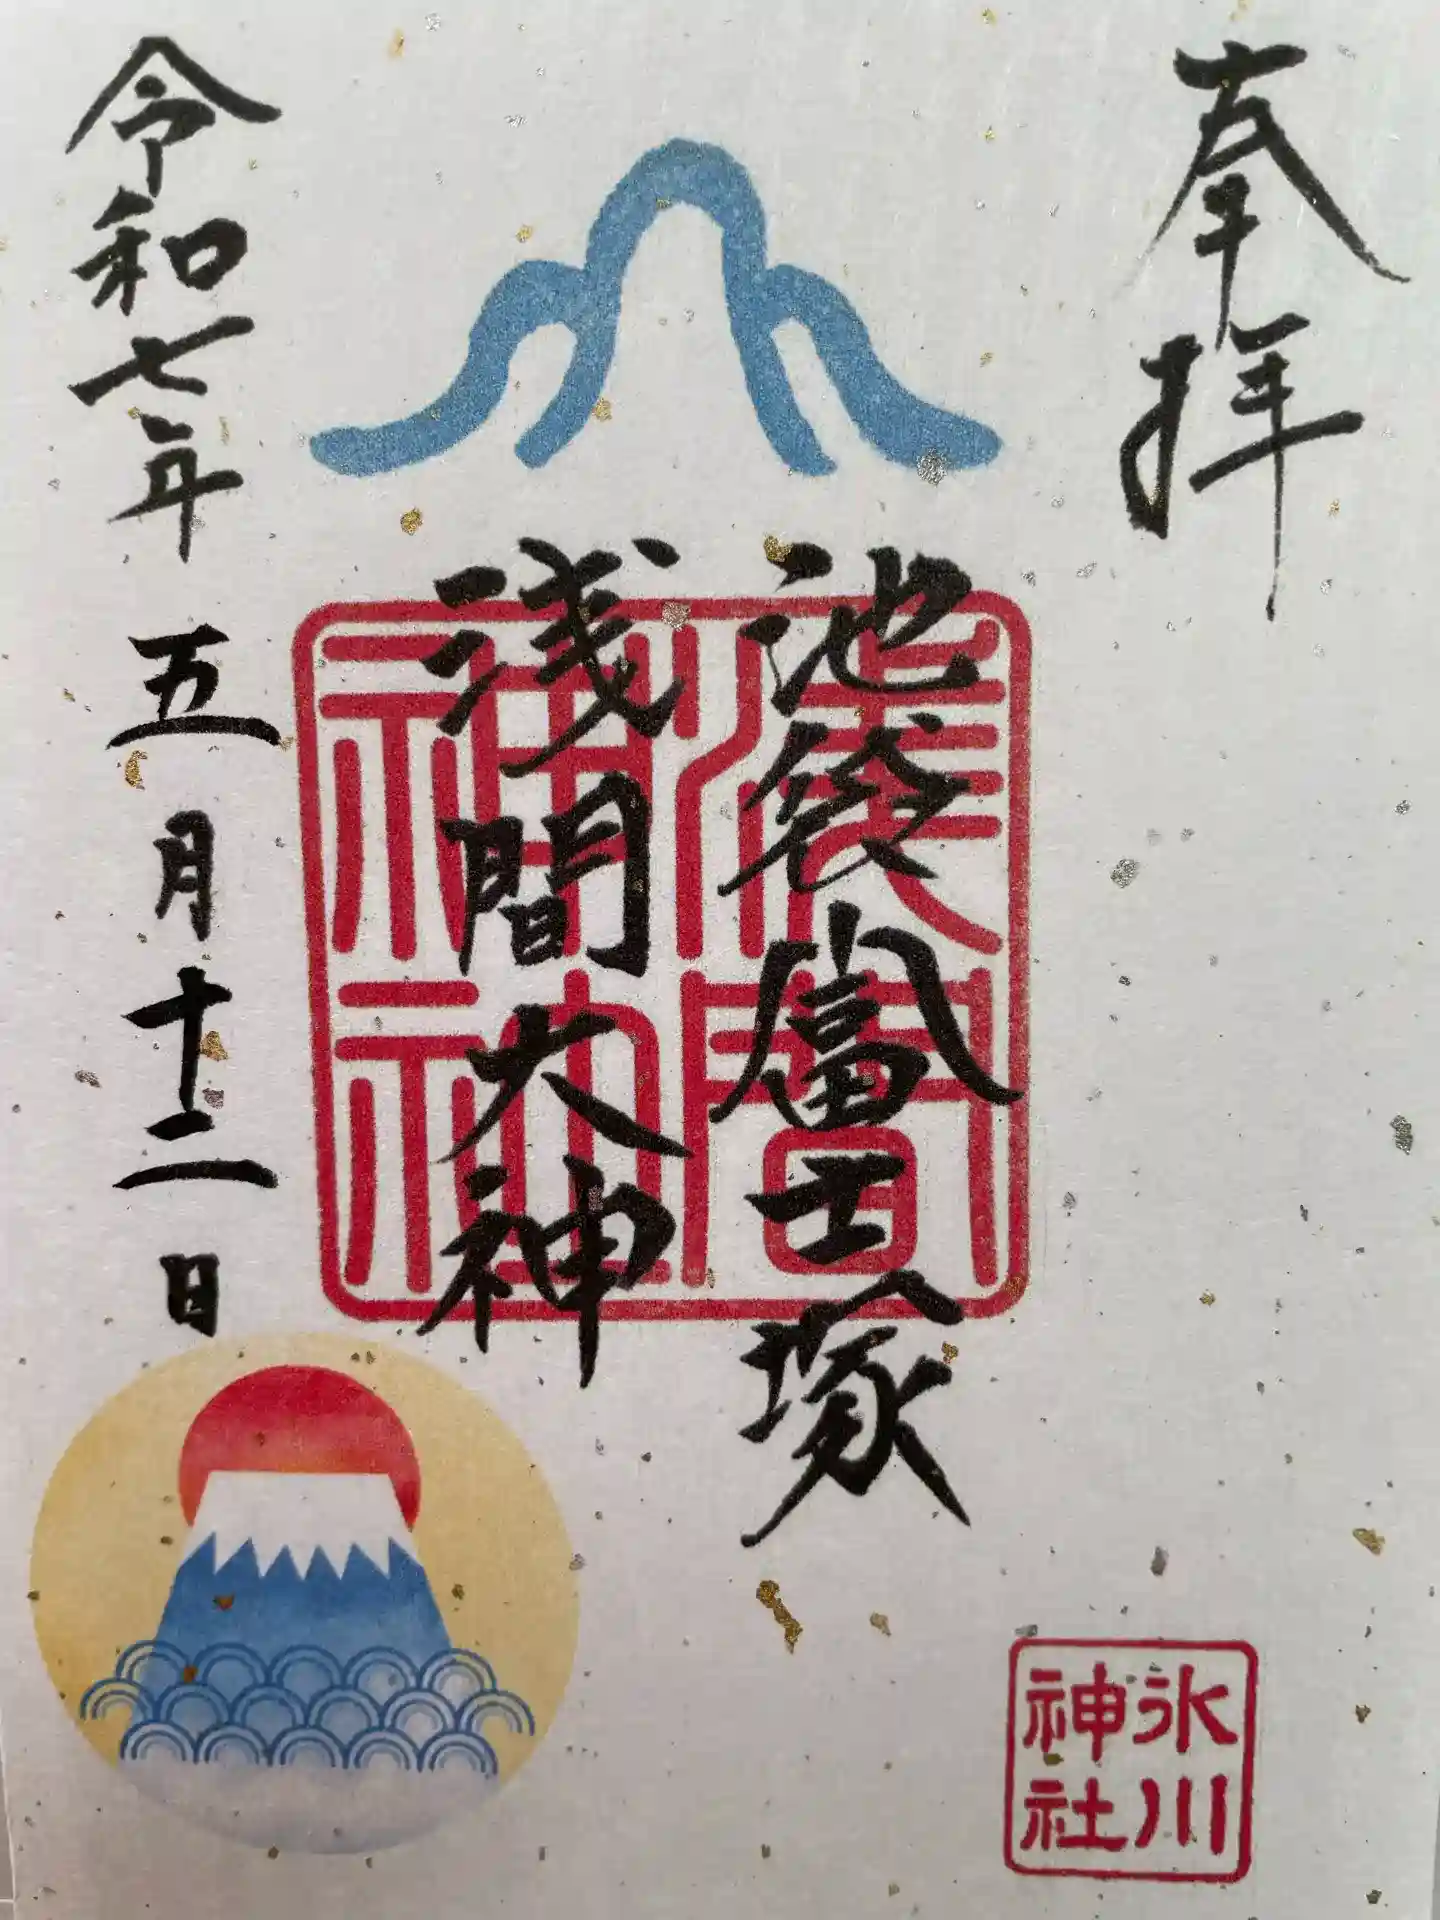 奉拝
池袋富士塚
浅間大神
令和七年五月十二日
浅間
神社
氷川
神社